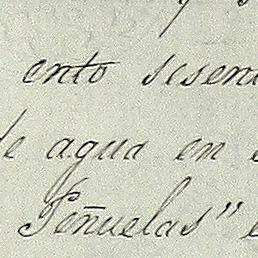 ento sesen
de agua en
Peñuelas" e